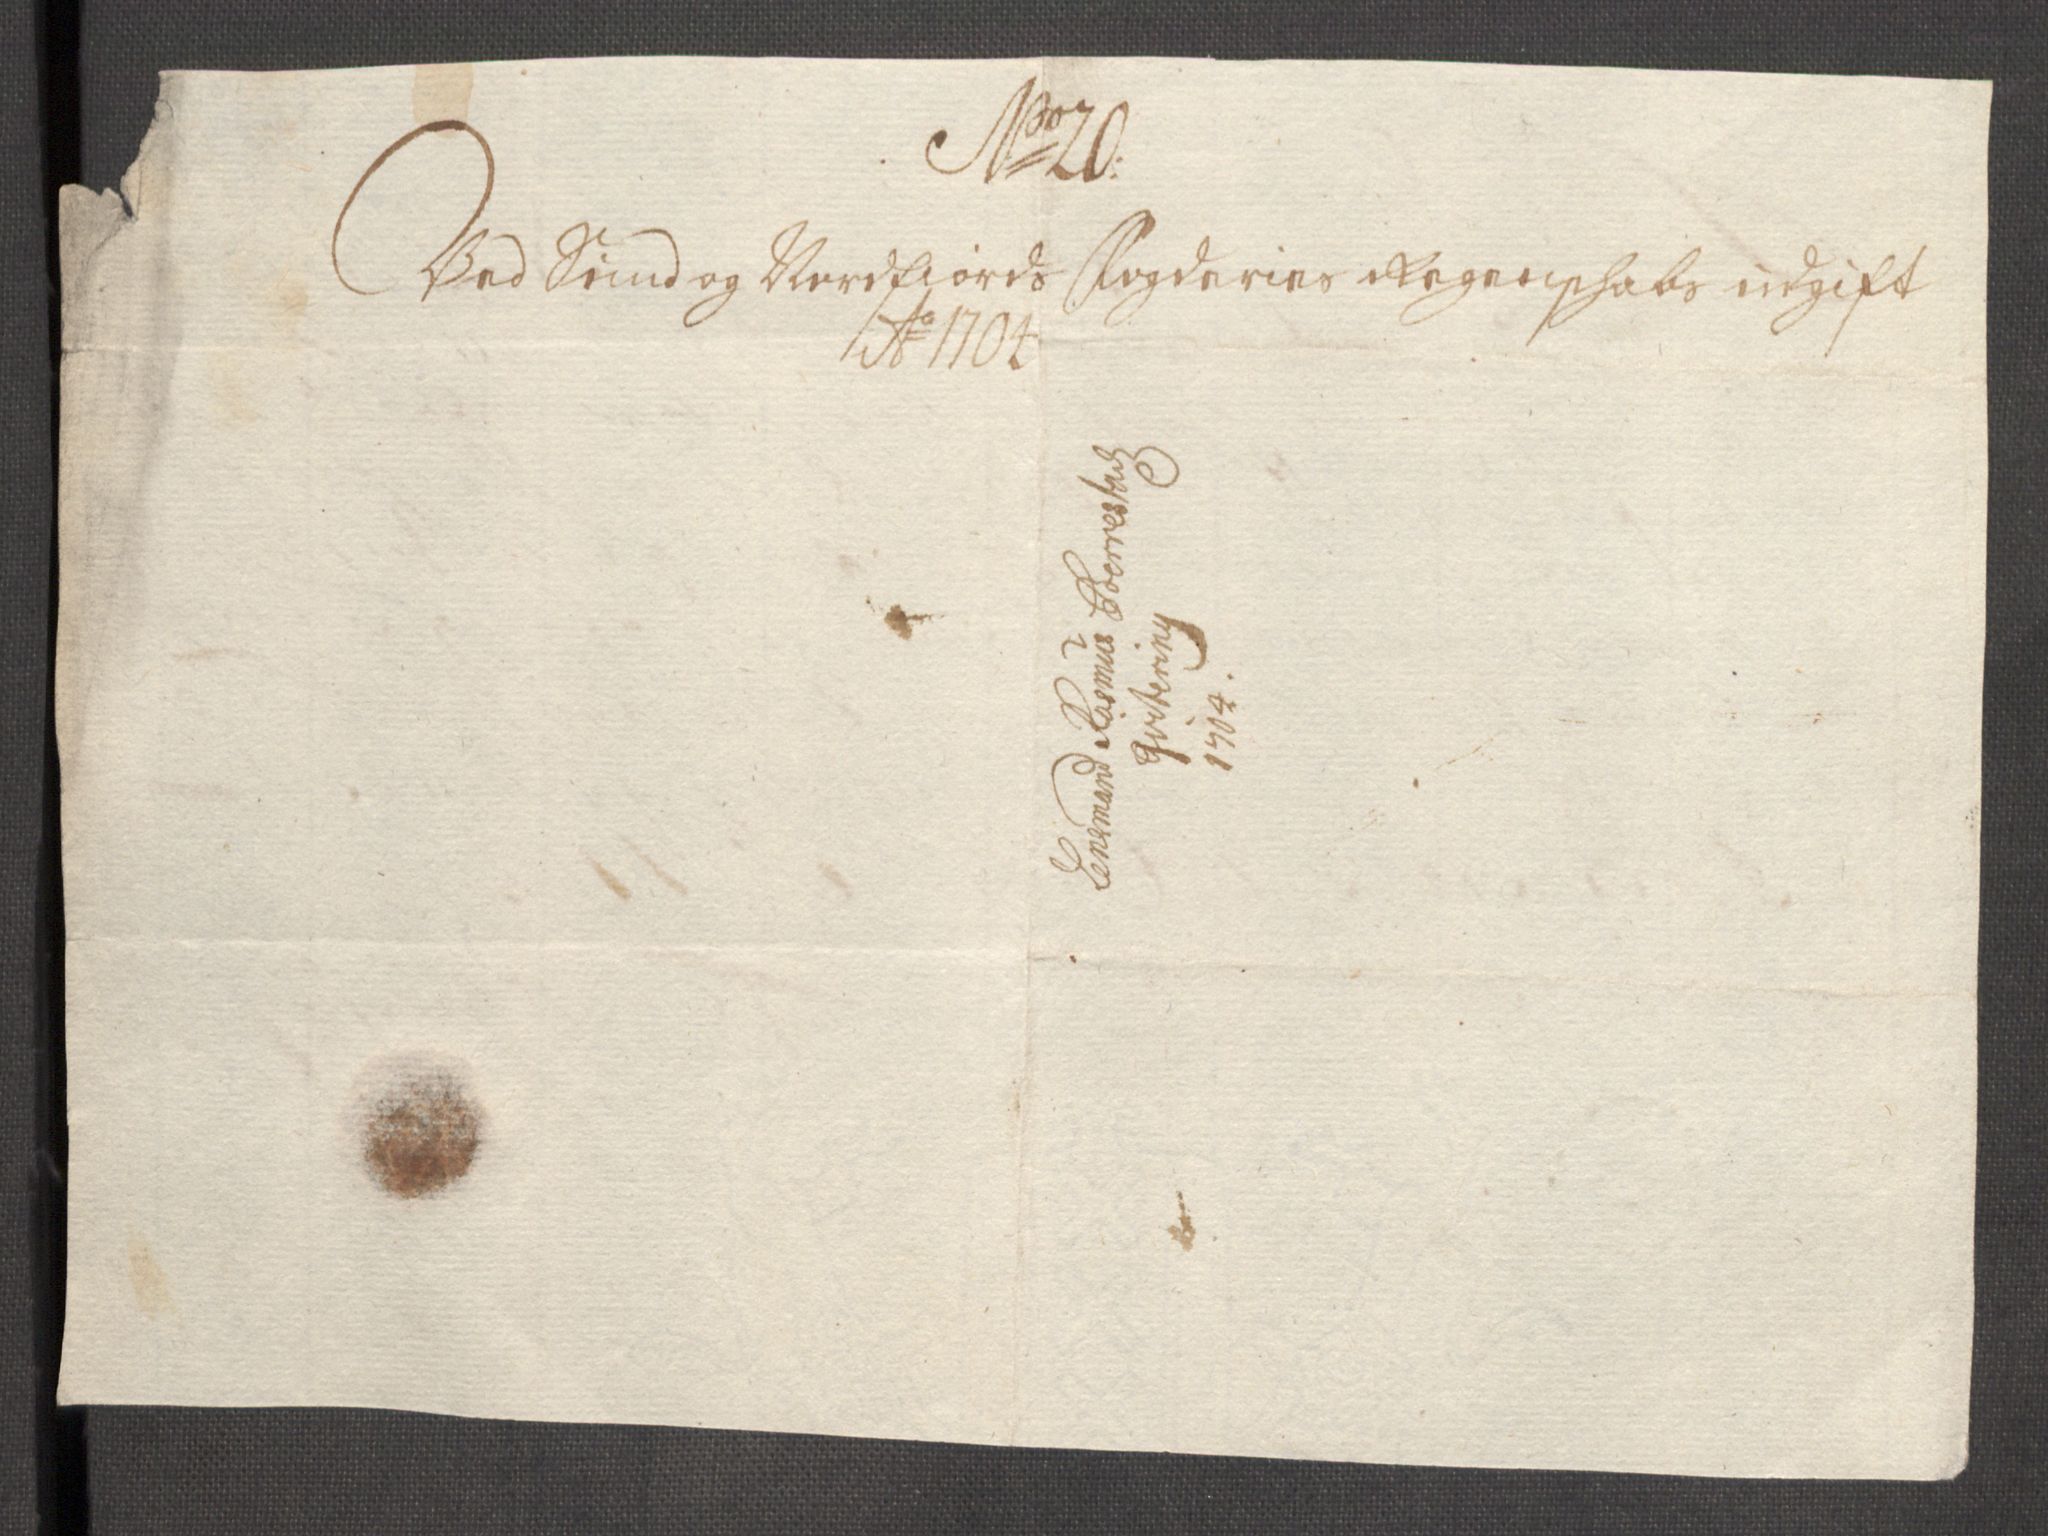 No 20.
Ved Sund og Nordfiords Fogderies Regenschabs udgift
Ao 1704
Lensmand Rasmus Boerrestad
Qvitering
1704.